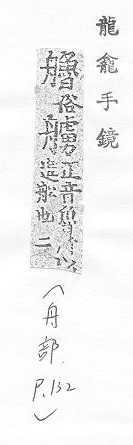 龍龕手鏡
艪俗艣正音魯所以進船也二
（舟部. P.132）